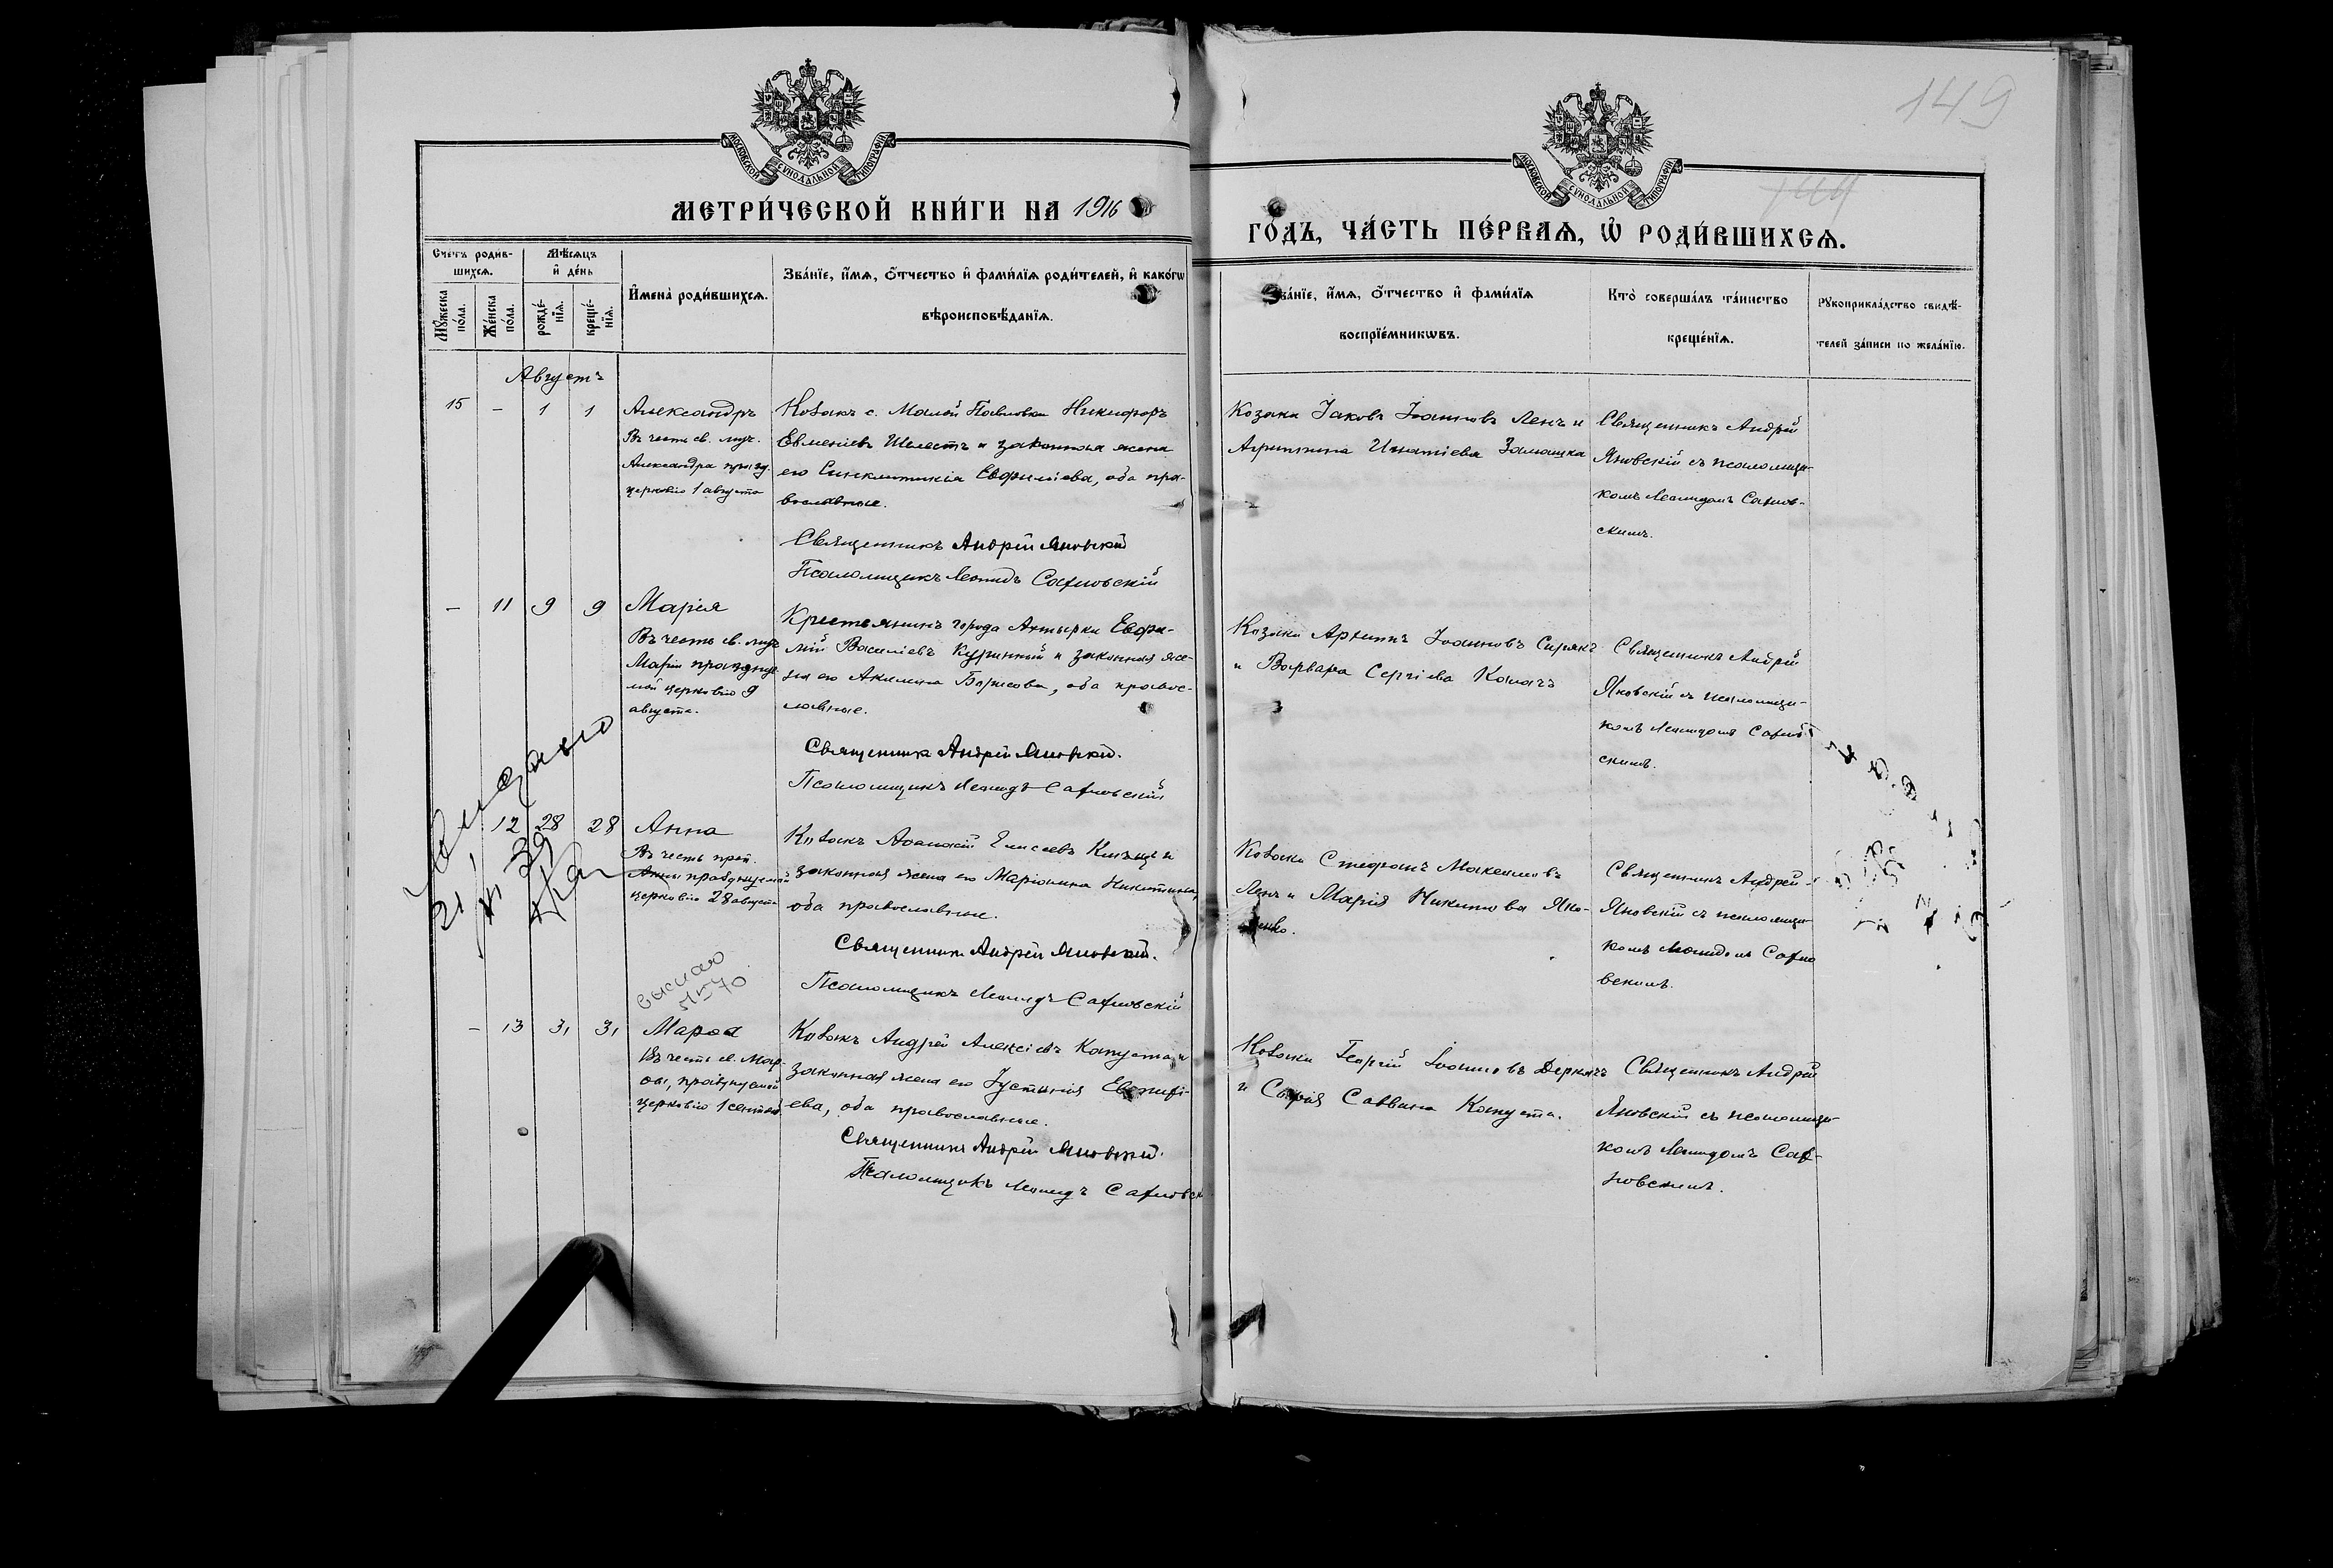 149
МОСКОВСКОЙ СѴНОДАЛЬНОЙ ТИПОГРАФІИ
МОСКОВСКОЙ СѴНОДАЛЬНОЙ ТИПОГРАФІИ
МЕТРИ́ЧЕСКОЙ КНИ́ГИ НА 1916
ГО́ДЪ, ЧА́СТЬ ПЕ́РВАѦ, Ѡ҆ РОДИ́ВШИХСѦ.
Сче́тъ роди́в-
шихсѧ.
Мѣ́сѧцъ
и҆ де́нь
Мꙋ́жеска
по́ла.
Же́нска
по́ла.
рожде́-
нїѧ.
креще́-
нїѧ.
И҆мена̀ роди́вшихсѧ.
Зва́нїе, и҆́мѧ, ѻ҆́тчество и҆ фами́лїѧ роди́телей, и҆ како́гѡ
вѣроисповѣ́данїѧ.
Зва́нїе, и҆́мѧ, ѻ҆́тчество и҆ фами́лїѧ
воспрїе́мникѡвъ.
Кто̀ соверша́лъ та́инство
креще́нїѧ.
Рꙋкоприкла́дство свидѣ́-
телей за́писи по жела́нїю.
Августъ
15 - 1 1
Александръ
Въ честь св. муч.
Александра празд.
церковію 1 августа
Козакъ с. Малой Павловки Никифоръ
Евменіевъ Шелестъ и законная жена
его Синклитикія Евфиміева, оба пра-
вославные.
Священникъ Андрей Яновскій
Псаломщикъ Леонидъ Сафновскій
Козаки Іаковъ Іоанновъ Ленъ и
Агриппина Игнатіева
Священникъ Андрей
Яновскій съ псаломщи-
комъ Леонидомъ Сафнов-
скимъ.
- 11 9 9
Марія
Въ честь св. муч.
Маріи празднуе-
мой церковію 9
августа.
Крестьянинъ города Ахтырки Евфи-
мій Василіевъ Куринный и законная же-
на его Акилина Борисова, оба правос-
лавные.
Священникъ Андрей Яновскій.
Псаломщикъ Леонидъ Сафновскій
Козаки Архипъ Іоанновъ Сирякъ
и Варвара Сергіева
Священникъ Андрей
Яновскій съ псаломщи-
комъ Леонидомъ Сафнов-
скимъ.
12 28 28
Анна
Въ честь преп.
Анны празднуемой
церковію 28 августа
Козакъ Елисеевъ
законная жена его Маріанна Никитина,
оба православные.
Священникъ Андрей Яновскій.
Псаломщикъ Леонидъ Сафновскій
Козаки Стефанъ
Ленъ и Марія Никитова Яко-
венко.
Священникъ Андрей
Яновскій съ псаломщи-
комъ Леонидомъ Сафно
вскимъ.
- 13 31 31
Марѳа
Въ честь св. Мар-
ѳы, празднуемой
церковію 1 сентяб.
Козакъ Андрей Алексіевъ Капуста и
законная жена его Іустинія
ева, оба православные.
Священникъ Андрей Яновскій.
Псаломщикъ Леонидъ Сафновск
Козаки Георгій Іоанновъ Деркачъ
и Софія Саввина Капуста.
Священникъ Андрей
Яновскій съ псаломщи-
комъ Леонидомъ Саф-
новскимъ.